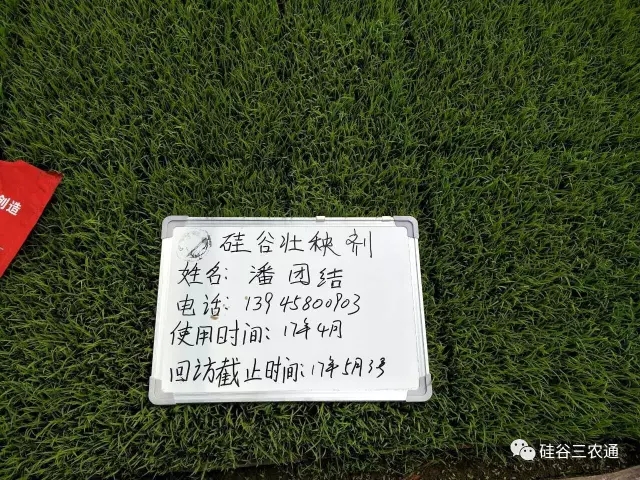 创造
硅谷壮秧剂
姓名: 潘团结
电话: 13945800903
使用时间: 17年4月
回访截止时间: 17年5月3号
硅谷三农通